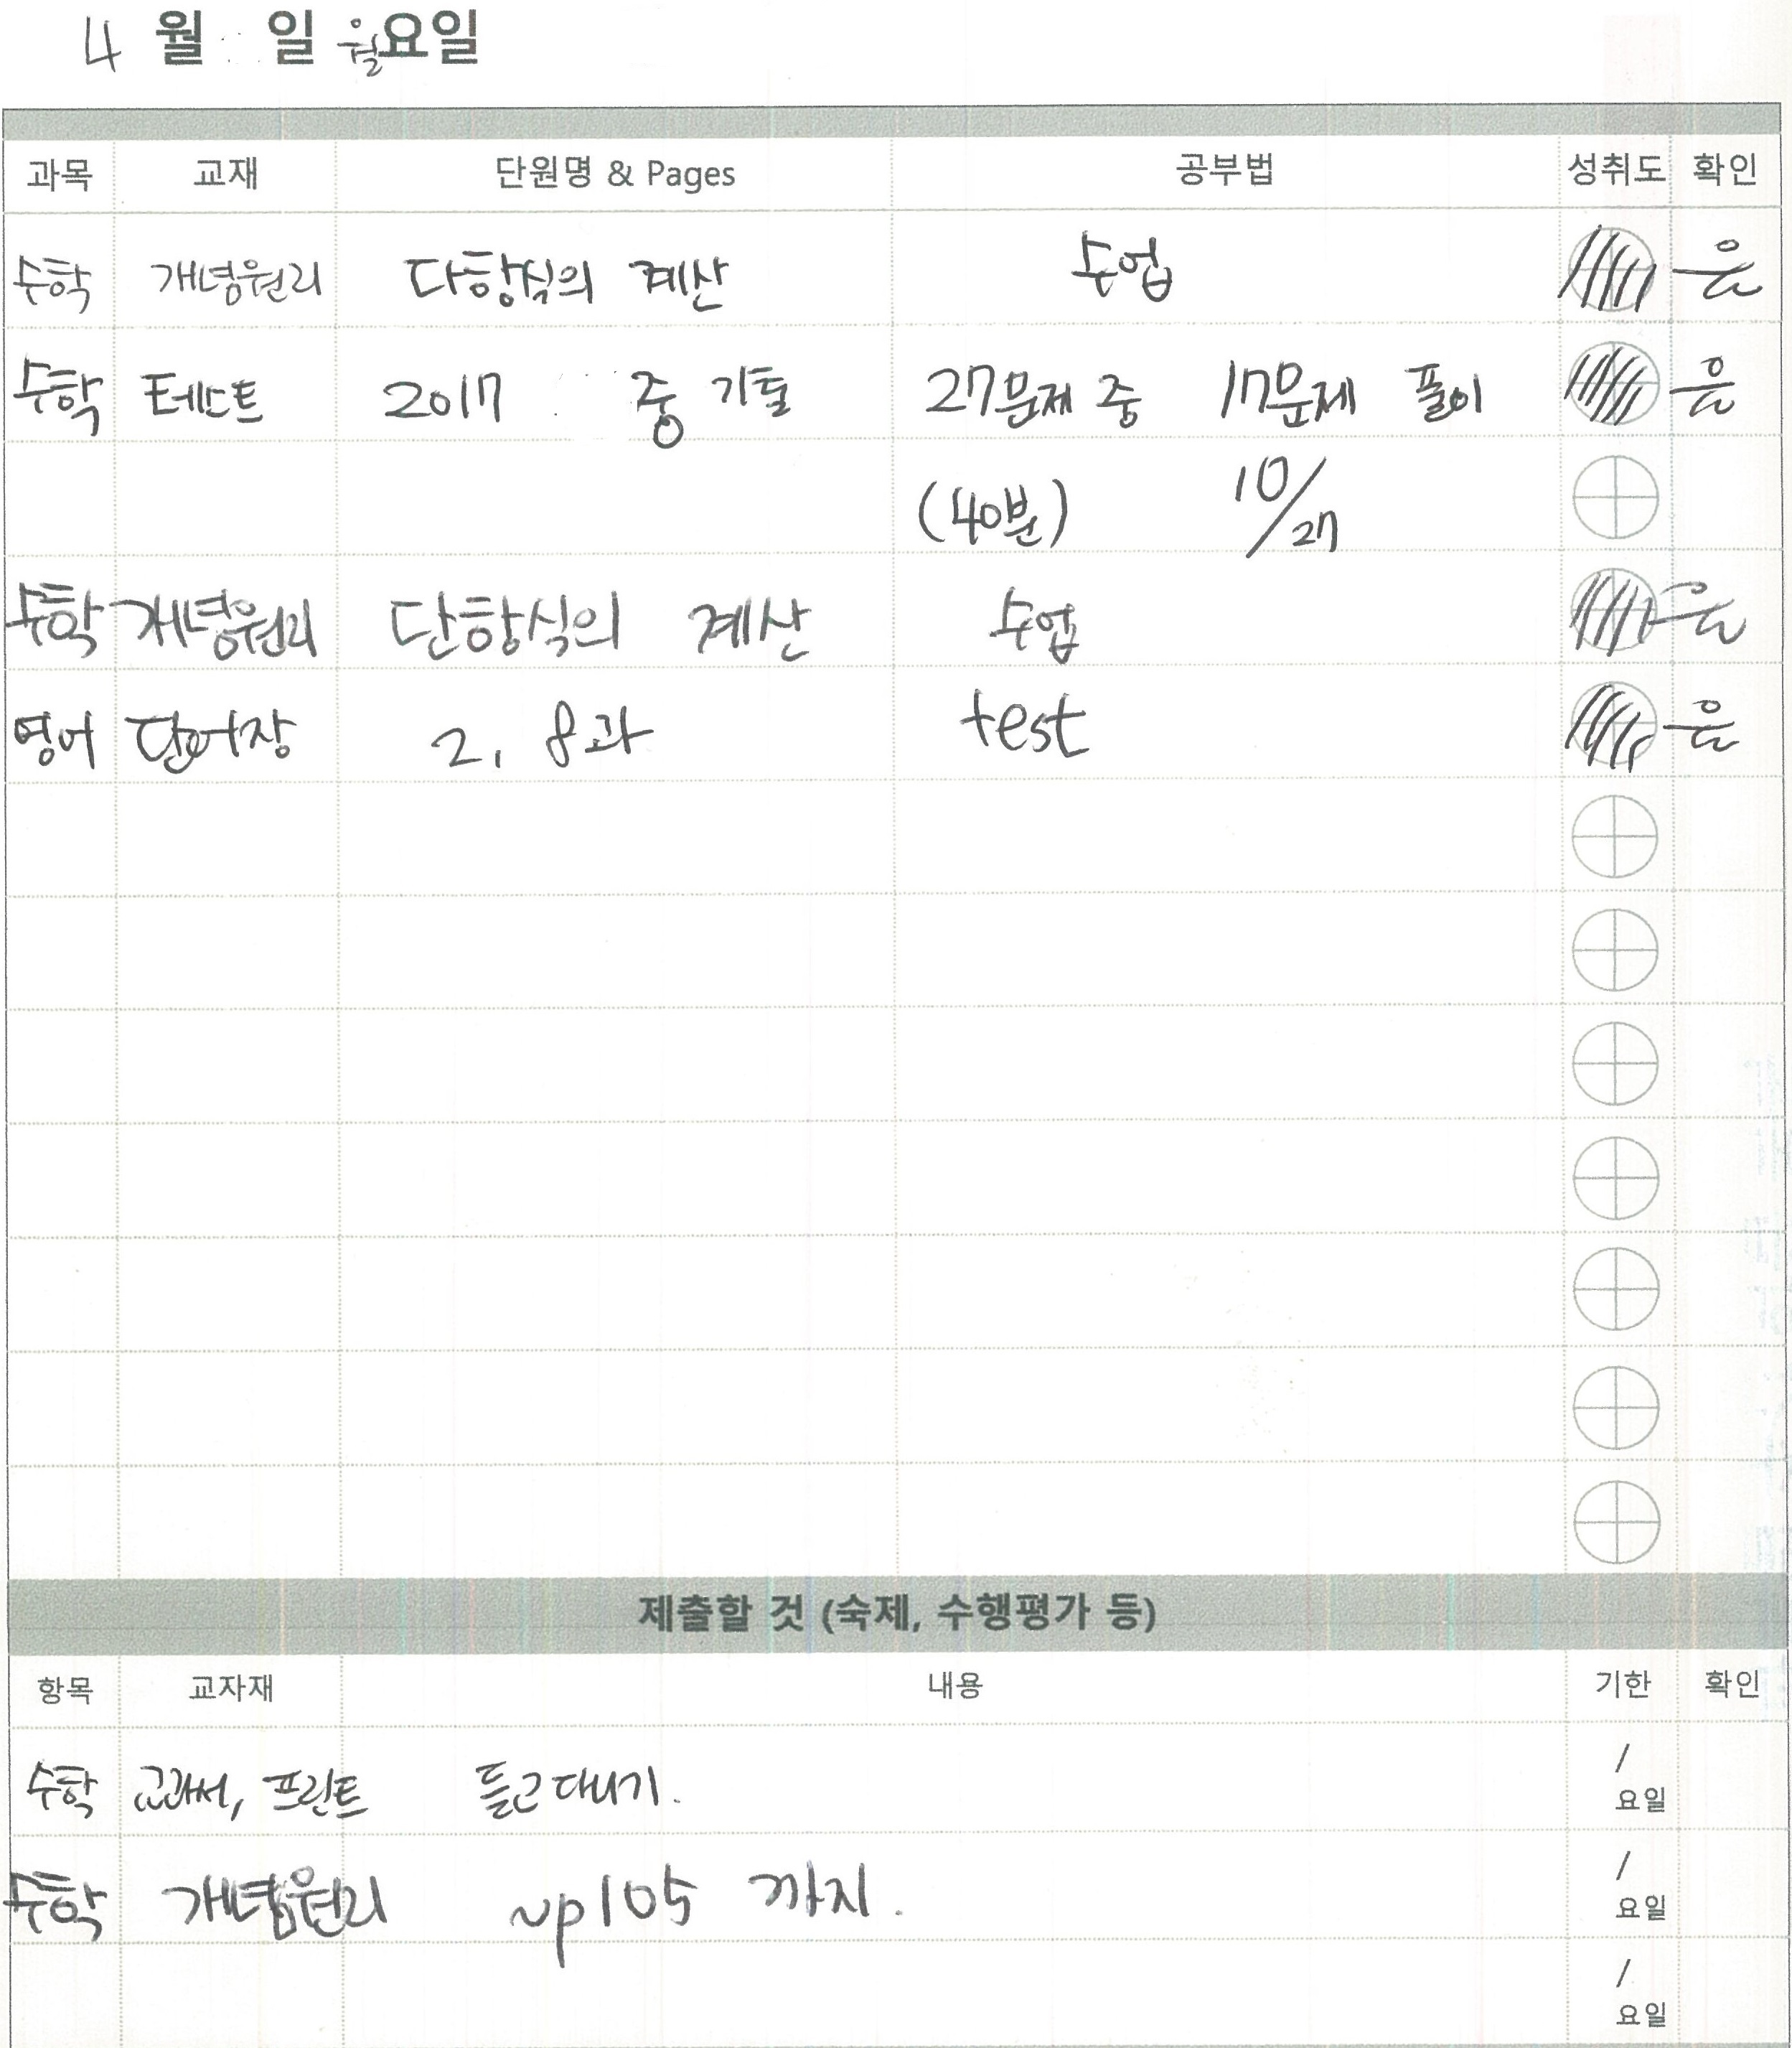 4 월 일 월요일
과목 교재 단원명 & Pages 공부법 성취도 확인
수학 개념원리 다항식의 계산 수업 은
수학 테스트 2017 중 기출 27문제 중 17문제 풀이 은
(40분) 10/27
수학 개념원리 단항식의 계산 수업 은
영어 단어장 2, 8과 test 은
제출할 것 (숙제, 수행평가 등)
항목 교자재 내용 기한 확인
수학 교과서, 프린트 들고다니기. / 요일
수학 개념원리 ~p105 까지. / 요일
/ 요일